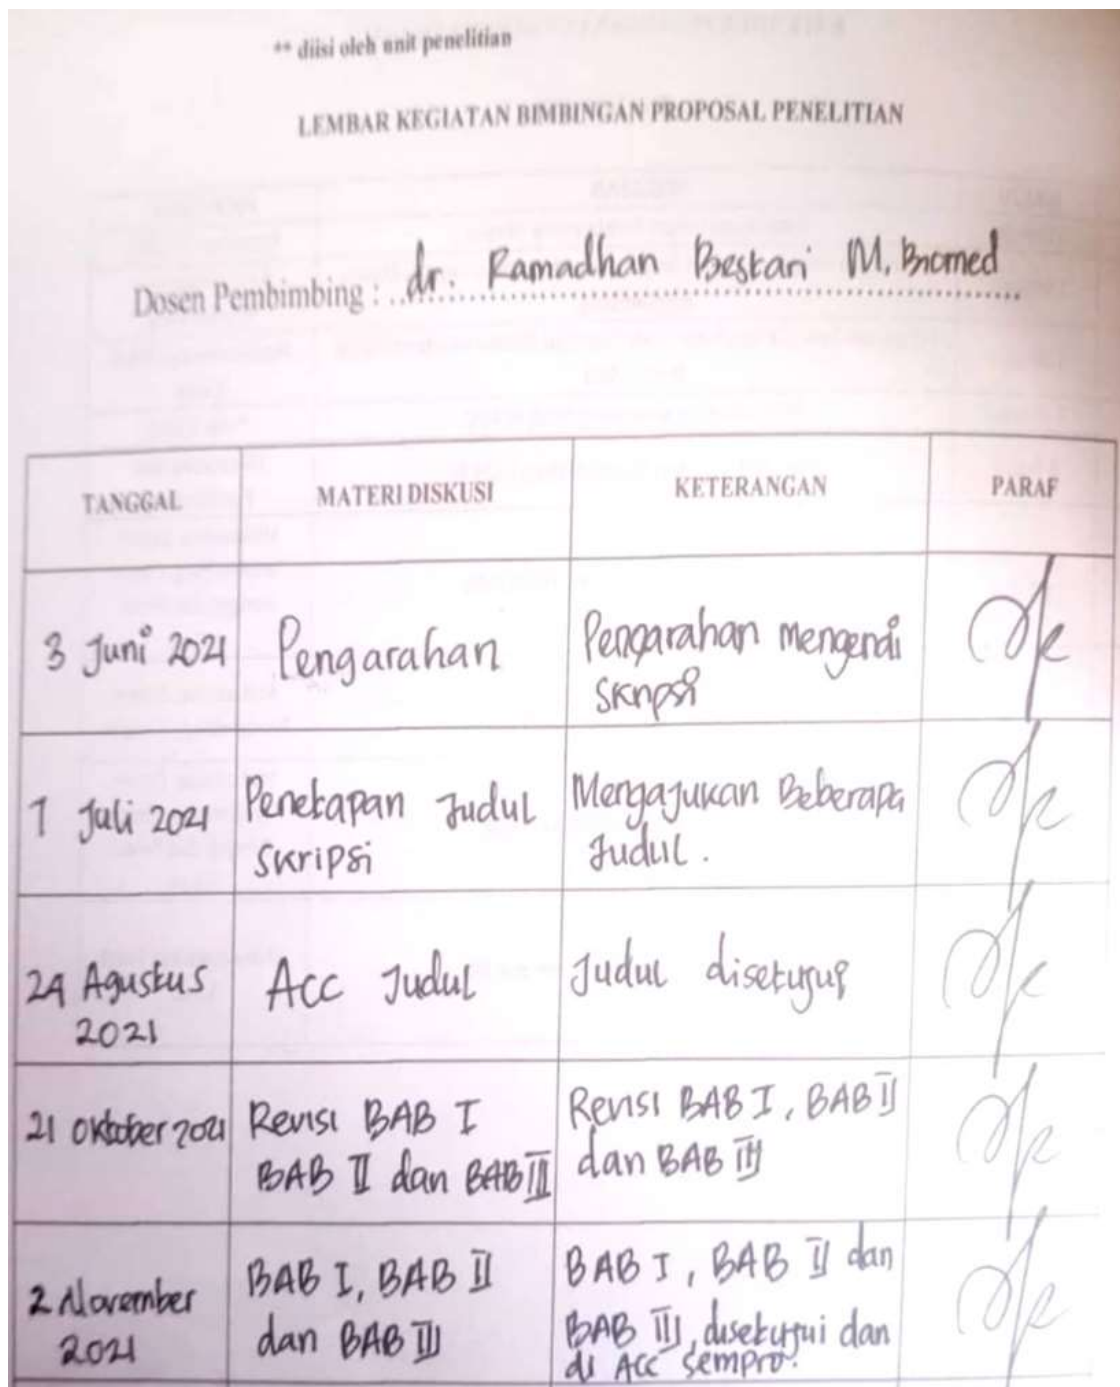 ** diisi oleh unit penelitian
LEMBAR KEGIATAN BIMBINGAN PROPOSAL PENELITIAN
Dosen Pembimbing : dr. Ramadhan Bestari M. Biomed
TANGGAL
MATERI DISKUSI
KETERANGAN
PARAF
3 Juni 2021
Pengarahan
Pengarahan mengenai
Skripsi
1 Juli 2021
Penetapan Judul
Skripsi
Mengajukan Beberapa
Judul.
24 Agustus
2021
Acc Judul
Judul disetujui
21 Oktober 2021
Revisi BAB I
BAB II dan BAB III
Revisi BAB I, BAB II
dan BAB III
2 November
2021
BAB I, BAB II
dan BAB III
BAB I, BAB II dan
BAB III, disetujui dan
di Acc Sempro.